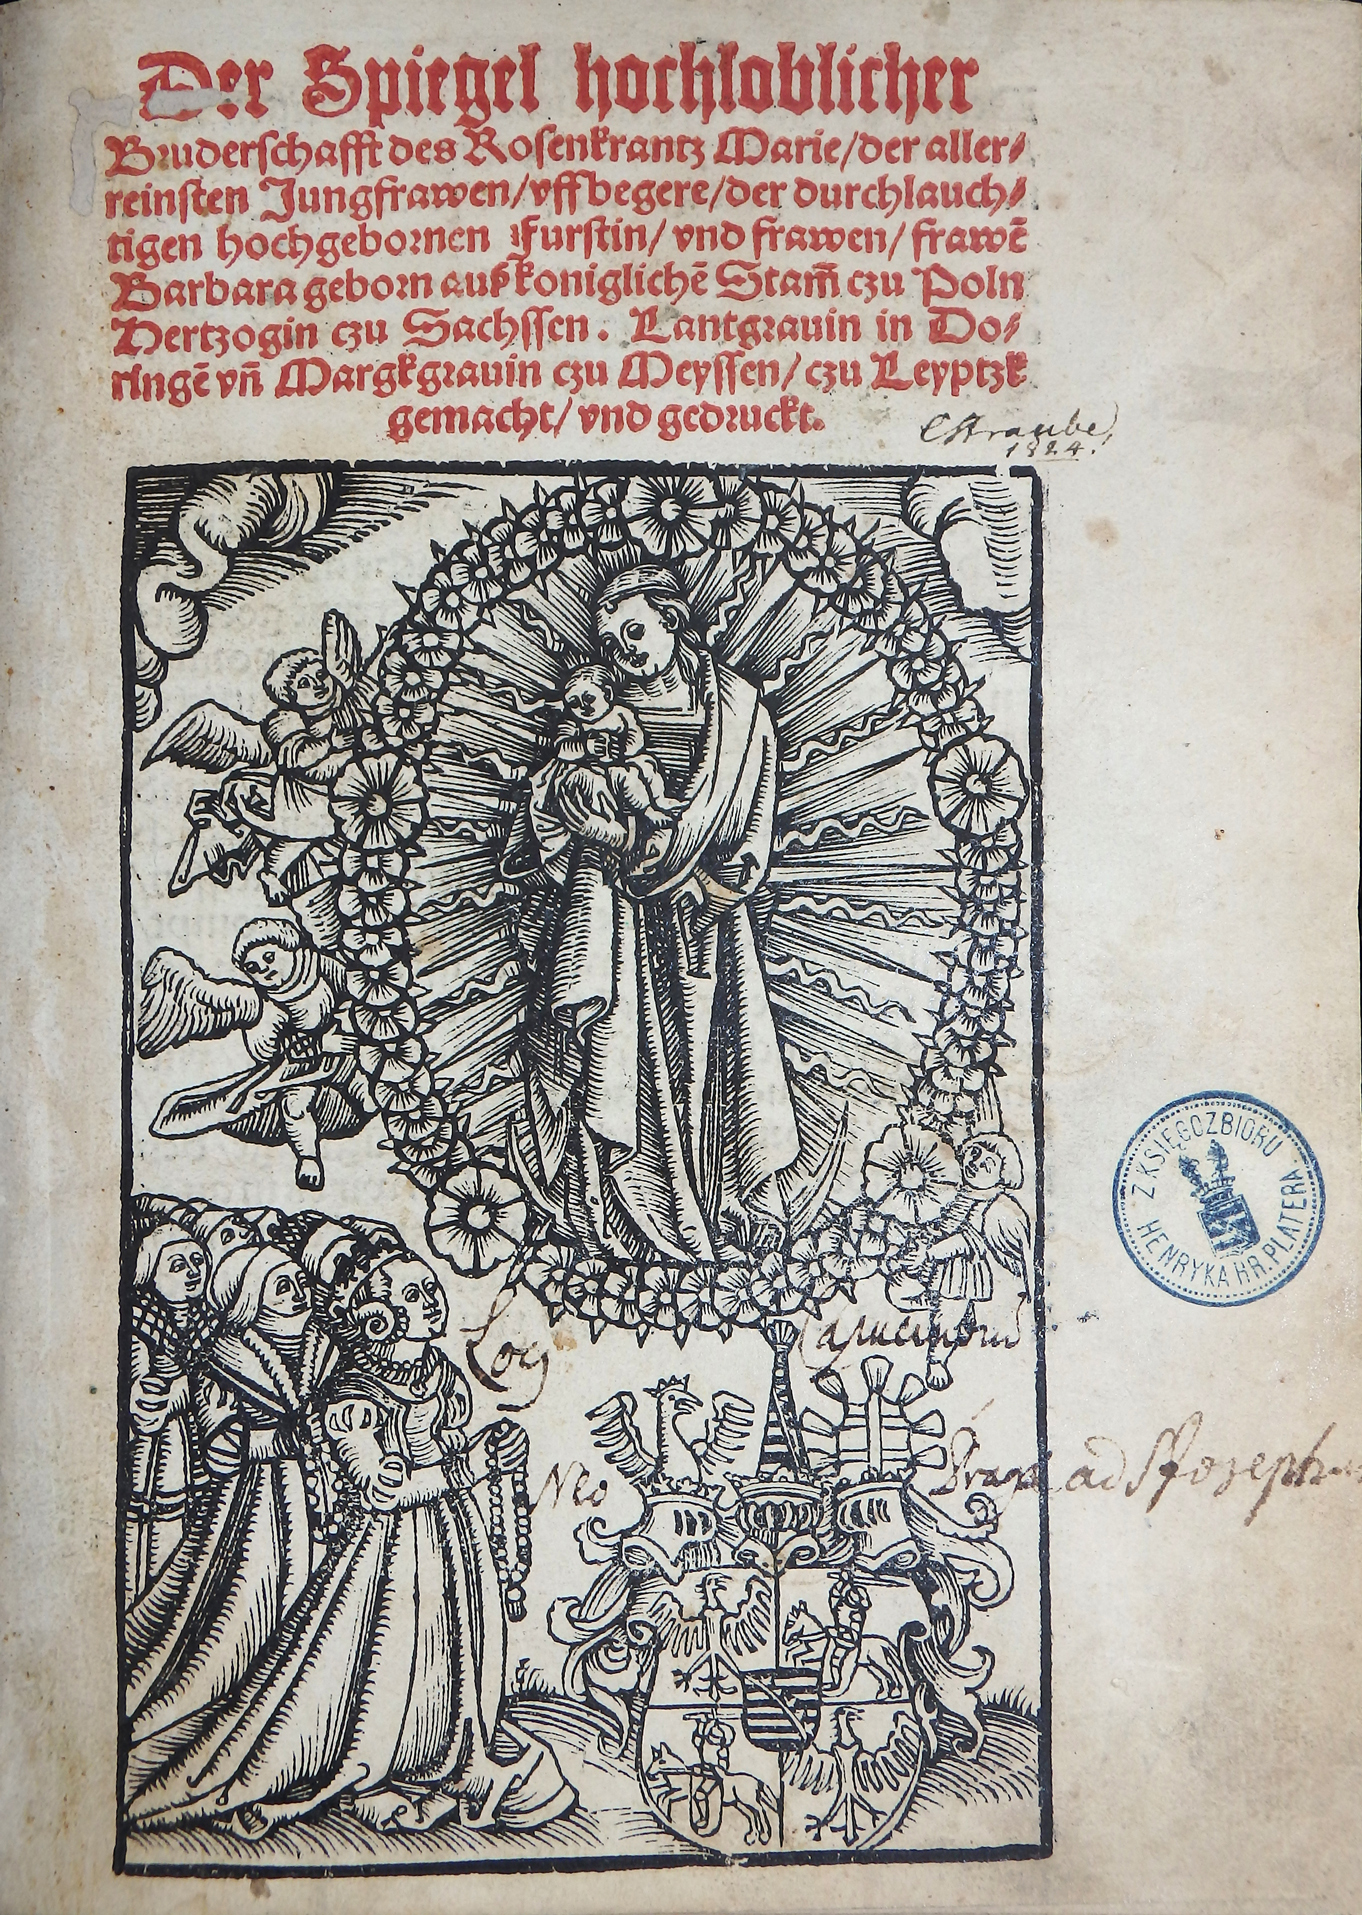 Der Spiegel hochloblicher
Bruderschafft des Rosenkrantz Marie/der aller⸗
reinsten Jungfrawen/vff begere/der durchlauch⸗
tigen hochgebornen Furstin/ vnd frawen/ frawē
Barbara geborn auß koniglichē Stam̄ czu Poln
Hertzogin czu Sachssen. Lantgrauin in Do⸗
ringē vn̄ Margkgrauin czu Meyssen/ czu Leyptzk
gemacht/ vnd gedruckt.
CStraube,
1824.
Z KSIĘGOZBIORU
HENRYKA HR. PLATERA
Neo
Pragæ ad S Joseph